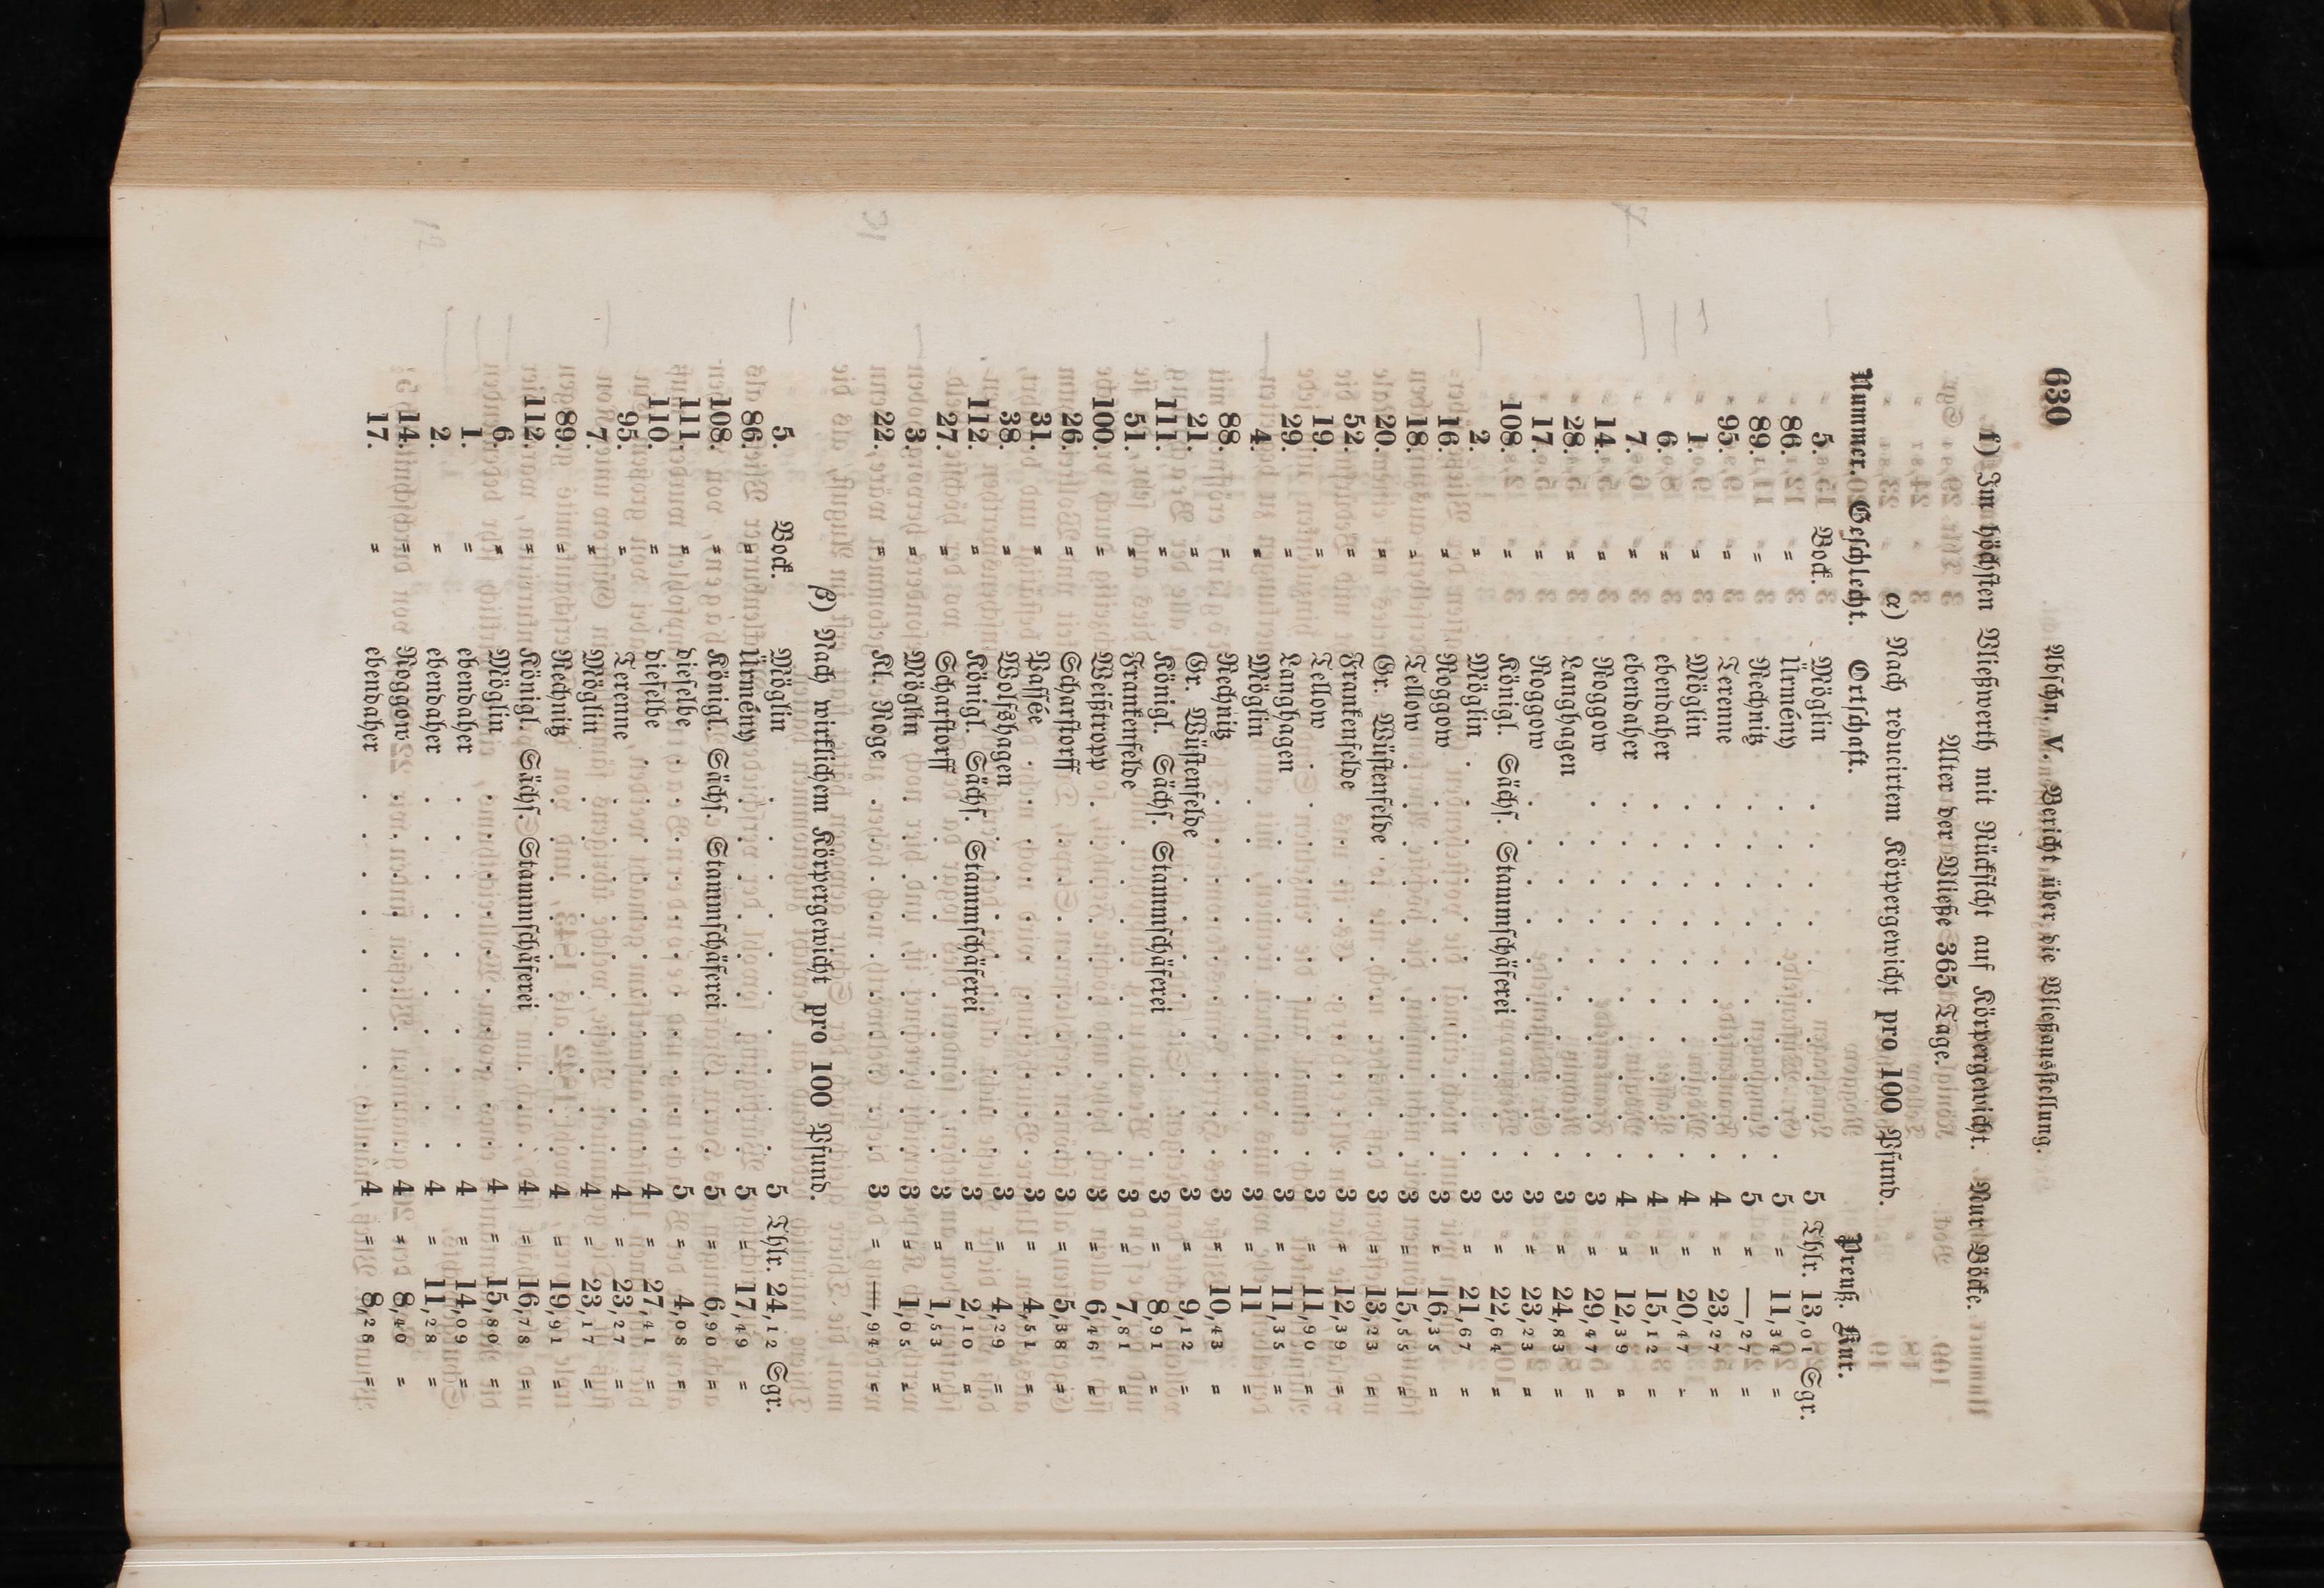 630 Abschn. V. Bericht über die Vließausstellung.
f) Im höchsten Vließwerth mit Rücksicht auf Körpergewicht. Nur Böcke.
Alter der Vließe 365 Tage.
α) Nach reducirtem Körpergewicht pro 100 Pfund.
Nummer. Geschlecht. Ortschaft. Preuß. Kur.
5. Bock. Möglin . . . . . . . . . . 5 Thlr. 13,01 Sgr.
86. " Ürmény . . . . . . . . . . 5 " 11,34 "
89. " Rechnitz . . . . . . . . . . 5 " —,27 "
95. " Terenne . . . . . . . . . . 4 " 23,27 "
1. " Möglin . . . . . . . . . . 4 " 20,47 "
6. " ebendaher . . . . . . . . . . 4 " 15,12 "
7. " ebendaher . . . . . . . . . . 4 " 12,39 "
14. " Roggow . . . . . . . . . . 3 " 29,47 "
28. " Langhagen . . . . . . . . . . 3 " 24,83 "
17. " Roggow . . . . . . . . . . 3 " 23,23 "
108. " Königl. Sächs. Stammschäferei . . . . 3 " 22,64 "
2. " Möglin . . . . . . . . . . 3 " 21,67 "
16. " Roggow . . . . . . . . . . 3 " 16,35 "
18. " Tellow . . . . . . . . . . 3 " 15,55 "
20. " Gr. Wüstenfelde . . . . . . . . 3 " 13,23 "
52. " Frankenfelde . . . . . . . . . 3 " 12,39 "
19. " Tellow . . . . . . . . . . 3 " 11,90 "
29. " Langhagen . . . . . . . . . . 3 " 11,35 "
4. " Möglin . . . . . . . . . . 3 " 11 "
88. " Rechnitz . . . . . . . . . . 3 " 10,43 "
21. " Gr. Wüstenfelde . . . . . . . . 3 " 9,12 "
111. " Königl. Sächs. Stammschäferei . . . . 3 " 8,91 "
51. " Frankenfelde . . . . . . . . . 3 " 7,81 "
100. " Weistropp . . . . . . . . . . 3 " 6,46 "
26. " Scharstorff . . . . . . . . . . 3 " 5,38 "
31. " Passée . . . . . . . . . . 3 " 4,51 "
38. " Wolfshagen . . . . . . . . . . 3 " 4,29 "
112. " Königl. Sächs. Stammschäferei . . . . 3 " 2,10 "
27. " Scharstorff . . . . . . . . . . 3 " 1,53 "
3. " Möglin . . . . . . . . . . 3 " 1,05 "
22. " Kl. Roge . . . . . . . . . . 3 " —,94 "
β) Nach wirklichem Körpergewicht pro 100 Pfund.
5. Bock. Möglin . . . . . . . . . . 5 Thlr. 24,12 Sgr.
86. " Ürmény . . . . . . . . . . 5 " 17,49 "
108. " Königl. Sächs. Stammschäferei . . . . 5 " 6,90 "
111. " dieselbe . . . . . . . . . . 5 " 4,08 "
110. " dieselbe . . . . . . . . . . 4 " 27,41 "
95. " Terenne . . . . . . . . . . 4 " 23,27 "
7. " Möglin . . . . . . . . . . 4 " 23,17 "
89. " Rechnitz . . . . . . . . . . 4 " 19,91 "
112. " Königl. Sächs. Stammschäferei . . . . 4 " 16,78 "
6. " Möglin . . . . . . . . . . 4 " 15,80 "
1. " ebendaher . . . . . . . . . . 4 " 14,09 "
2. " ebendaher . . . . . . . . . . 4 " 11,28 "
14. " Roggow . . . . . . . . . . 4 " 8,40 "
17. " ebendaher . . . . . . . . . . 4 " 8,28 "